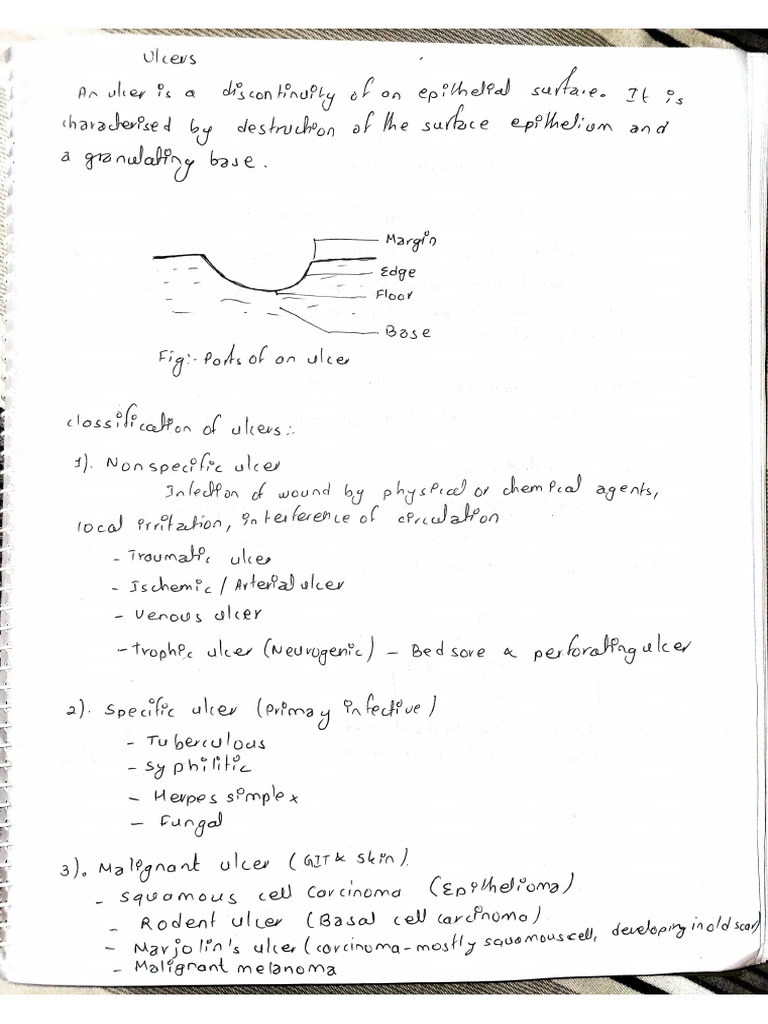 Ulcers
An ulcer is a discontinuity of an epithelial surface. It is
characterised by destruction of the surface epithelium and
a granulating base.
Margin
Edge
Floor
Base
Fig:- Parts of an ulcer
Classification of ulcers:-
1). Nonspecific ulcer
Infection of wound by physical or chemical agents,
local irritation, interference of circulation
- Traumatic ulcer
- Ischemic / Arterial ulcer
- Venous ulcer
- Trophic ulcer (Neurogenic) - Bed sore & perforating ulcer
2). Specific ulcer (primary infective)
- Tuberculous
- Syphilitic
- Herpes simplex
- Fungal
3). Malignant ulcer (GIT & skin)
- Squamous cell carcinoma (Epithelioma)
- Rodent ulcer (Basal cell carcinoma)
- Marjolin's ulcer (carcinoma - mostly squamous cell, developing in old scar)
- Malignant melanoma